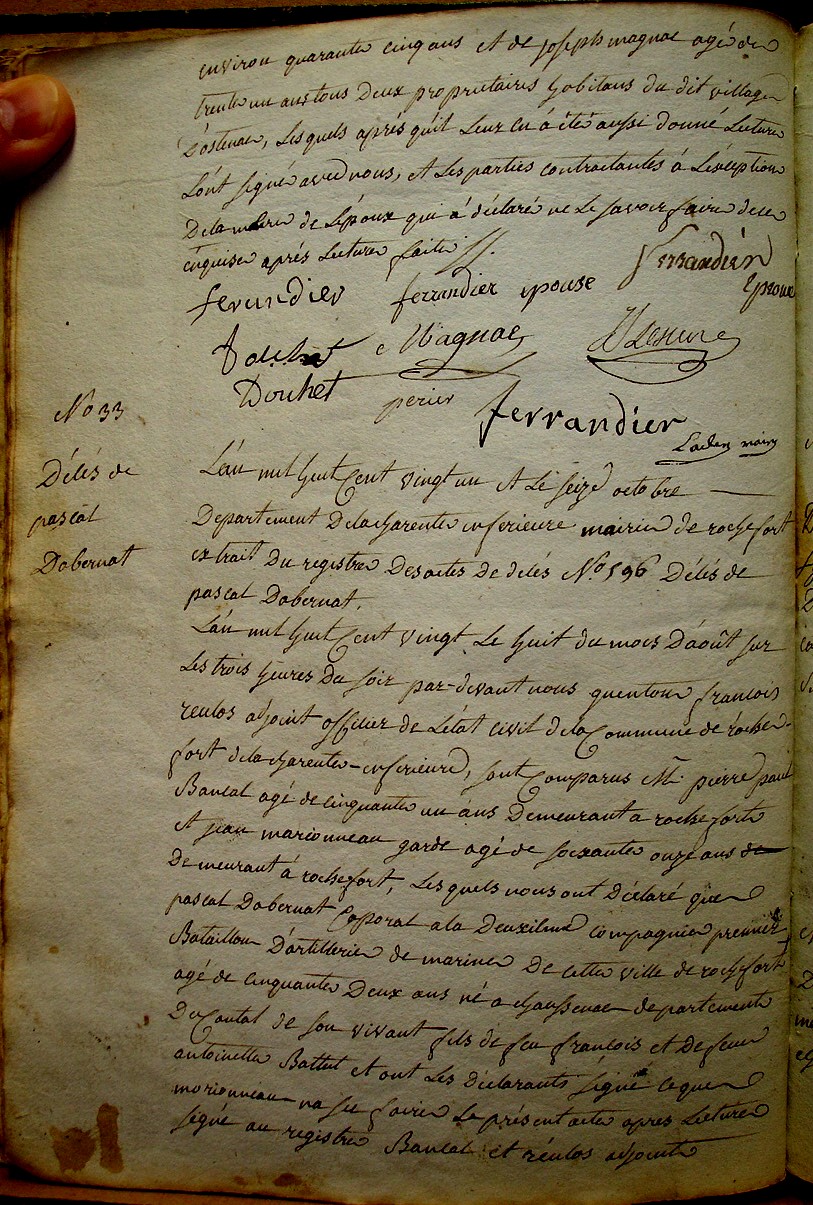 environ quarante cinq ans et de joseph magnac agé de
trente un ans tous Deux proprietaires habitans du dit village
Lesquels aprés qu'il Leur en à été aussi donné Lecture
L'ont signé avec nous, et Les parties contractantes à L'éxception
De la mere de L'époux qui à déclaré ne Le savoir faire de ce
enquise aprés Lecture faite ff.
ferundier ferrandier epouse ferrandier
Epoux
Magnac
Douhet perier ferrandier
No 33
Délés de
pascal
Dabernat
L'an mil huit Cent vingt un et Le seize octobre
Departement De la charente inferieure mairie de rochefort
extrait Du registre Des actes De délés No 596 Délés de
pascal Dabernat.
L'an mil huit Cent vingt Le huit du mois D'août sur
Les trois heures Du soir par-devant nous quentour francois
réulos adjoint officier de L'état civil de la Commune de roche-
fort de la charente-inferieure, sont Comparus Mr. pierre paul
Bancal agé de cinquante un ans Demeurant a rochefort
et jean marionneau garde agé de soixante onze ans de
Demeurant à rochefort, Les quels nous ont Déclaré que
pascal Dabernat Caporal a la Deuxieme compagnie premier
Bataillon D'artillerie de marine De cette ville de rochefort
agé de cinquante Deux ans né a chaussenac departement
Du Cantal de son vivant fils de feu francois et De feue
antoinette Battut et ont Les déclarants signé ce que
morionneau na su faire Le présent acte apres Lecture
signé au registre Bancal et réulos adjoint